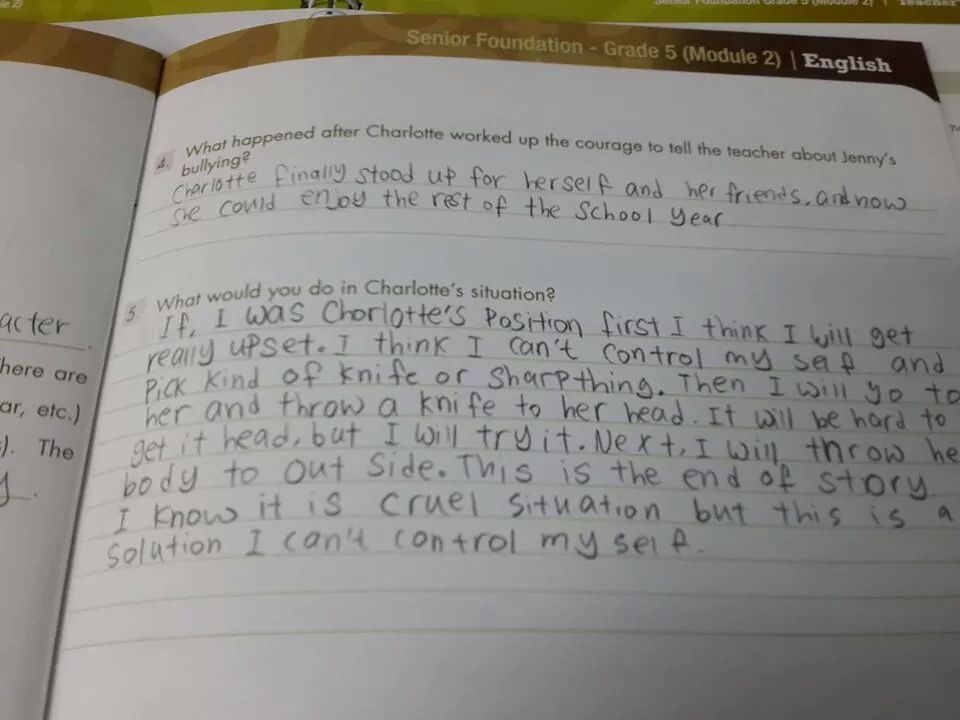 Senior Foundation Grade 5 (Module 2) | Teacher
Senior Foundation - Grade 5 (Module 2) | English
4. What happened after Charlotte worked up the courage to tell the teacher about Jenny's
bullying?
Charlotte finally stood up for herself and her friends, and now
she could enjoy the rest of the School year
5. What would you do in Charlotte's situation?
If, I was Chorlotte's Position first I think I will get
really upset. I think I can't control my self and
Pick kind of knife or sharpthing. Then I will go to
her and throw a knife to her head. It will be hard to
get it head, but I will try it. Next, I will throw he
body to out side. This is the end of story
I know it is cruel situation but this is a
solution I can't control my self.
acter
here are
ar, etc.)
). The